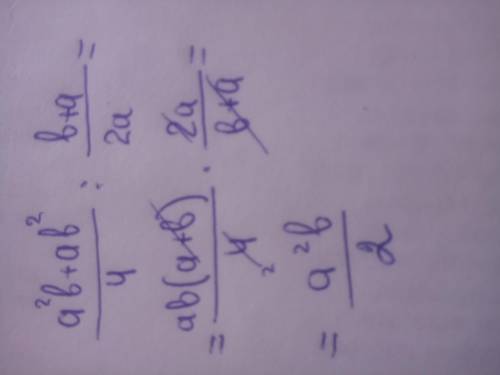 (a²b+ab²)/4 : (b+a)/2a =
= ab(a+b)/4 · 2a/(b+a) =
= a²b/2